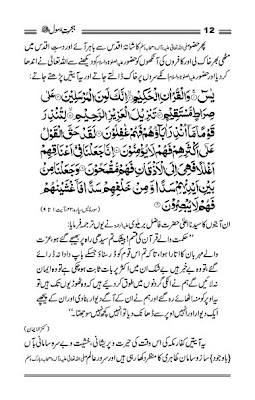 12 ہجرتِ رسول ﷺ
پھر حضور صلی اللہ تعالیٰ علیہ وآلہ واصحابہ وبارک وسلم کاشانۂ اقدس سے باہر آئے اور دستِ اقدس میں
مٹھی بھر خاک لی اور کافروں کی آنکھوں کو حضور علیہ الصلوٰۃ والسلام کو دیکھنے سے اللہ تعالیٰ نے اندھا
کر دیا اور حضور علیہ الصلوٰۃ والسلام انکے سروں پر خاک ڈالتے جاتے اور یہ آیتیں پڑھتے جاتے :
یٰسٓ ۝ وَالْقُرْاٰنِ الْحَکِیْمِ ۝ اِنَّکَ لَمِنَ الْمُرْسَلِیْنَ ۝ عَلٰی
صِرَاطٍ مُّسْتَقِیْمٍ ۝ تَنْزِیْلَ الْعَزِیْزِ الرَّحِیْمِ ۝ لِتُنْذِرَ
قَوْمًا مَّآ اُنْذِرَ اٰبَآؤُھُمْ فَھُمْ غٰفِلُوْنَ ۝ لَقَدْ حَقَّ الْقَوْلُ
عَلٰٓی اَکْثَرِھِمْ فَھُمْ لَا یُؤْمِنُوْنَ ۝ اِنَّا جَعَلْنَا فِیْٓ اَعْنَاقِھِمْ
اَغْلٰلًا فَھِیَ اِلَی الْاَذْقَانِ فَھُمْ مُّقْمَحُوْنَ ۝ وَجَعَلْنَا مِنْۢ
بَیْنِ اَیْدِیْھِمْ سَدًّا وَّ مِنْ خَلْفِھِمْ سَدًّا فَاَغْشَیْنٰھُمْ
فَھُمْ لَا یُبْصِرُوْنَ ۝
(سورۂ یٰس، پارہ ۲۲، آیت ۱ تا ۹)
ان آیتوں کا سیدنا اعلیٰ حضرت فاضل بریلوی نے یوں ترجمہ فرمایا :
"حکمت والے قرآن کی قسم! بیشک تم سیدھی راہ پر بھیجے گئے ہو، عزت
والے مہربان کا اتارا ہوا، تاکہ تم اس قوم کو ڈر سناؤ جسکے باپ دادا نہ ڈرائے
گئے، تو وہ بے خبر ہیں بے شک ان میں اکثر پر بات ثابت ہو چکی ہے تو وہ ایمان
نہ لائیں گے ہم نے انکی گردنوں میں طوق کر دیئے ہیں کہ وہ ٹھوڑیوں تک ہیں تو
یہ اوپر کو منہ اٹھائے رہ گئے اور ہم نے ان کے آگے دیوار بنا دی اور ان کے پیچھے
ایک دیوار اور انہیں اوپر سے ڈھانک دیا تو انہیں کچھ نہیں سوجھتا۔"
(کنز الایمان)
یہ آیتیں کفارِ مکہ کی اس وقت کی حیرت و پریشانی، خشیت و بے سرو سامانی یا
{باوجود} ساز و سامانِ ظاہری کا منظر دکھا رہی ہیں اور سرورِ عالم